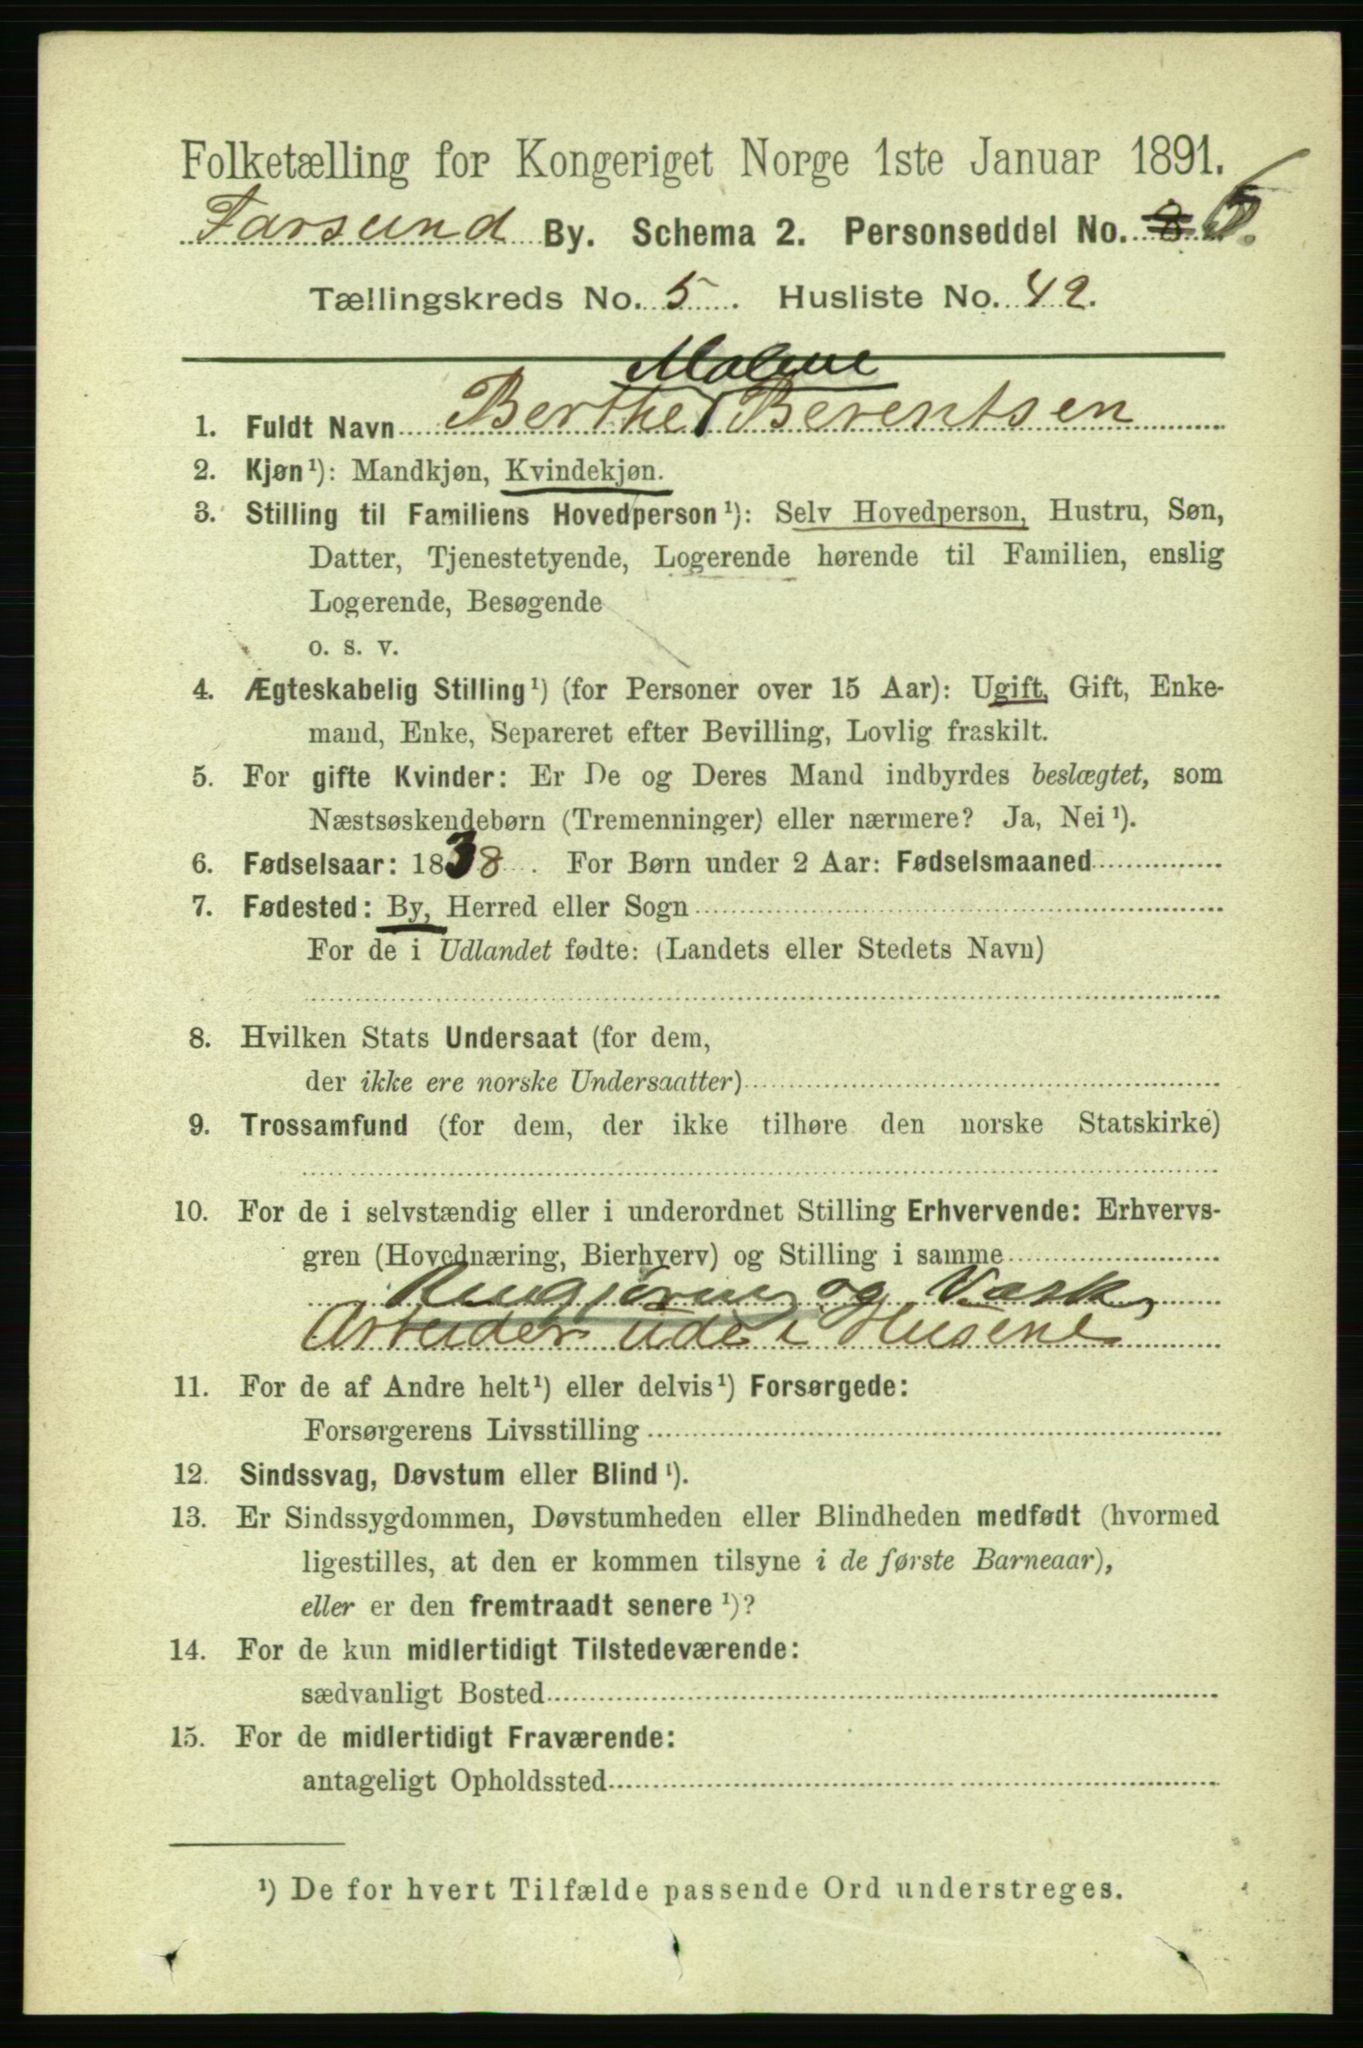 Folketælling for Kongeriget Norge 1ste Januar 1891.
Farsund By. Schema 2. Personseddel No. 8 6.
Tællingskreds No. 5. Husliste No. 42.
Malene
1. Fuldt Navn Berthe Berentsen
2. Kjøn¹): Mandkjøn, Kvindekjøn.
3. Stilling til Familiens Hovedperson¹): Selv Hovedperson, Hustru, Søn,
Datter, Tjenestetyende, Logerende hørende til Familien, enslig
Logerende, Besøgende
o. s. v.
4. Ægteskabelig Stilling¹) (for Personer over 15 Aar): Ugift, Gift, Enke-
mand, Enke, Separeret efter Bevilling, Lovlig fraskilt.
5. For gifte Kvinder: Er De og Deres Mand indbyrdes beslægtet, som
Næstsøskendebørn (Tremenninger) eller nærmere? Ja, Nei¹).
6. Fødselsaar: 1838. For Børn under 2 Aar: Fødselsmaaned
7. Fødested: By, Herred eller Sogn
For de i Udlandet fødte: (Landets eller Stedets Navn)
8. Hvilken Stats Undersaat (for dem,
der ikke ere norske Undersaatter)
9. Trossamfund (for dem, der ikke tilhøre den norske Statskirke)
10. For de i selvstændig eller i underordnet Stilling Erhvervende: Erhvervs-
gren (Hovednæring, Bierhverv) og Stilling i samme
Rengjøring og Vask,
Arbeider ude i Husene
11. For de af Andre helt¹) eller delvis¹) Forsørgede:
Forsørgerens Livsstilling
12. Sindssvag, Døvstum eller Blind¹).
13. Er Sindssygdommen, Døvstumheden eller Blindheden medfødt (hvormed
ligestilles, at den er kommen tilsyne i de første Barneaar),
eller er den fremtraadt senere¹)?
14. For de kun midlertidigt Tilstedeværende:
sædvanligt Bosted
15. For de midlertidigt Fraværende:
antageligt Opholdssted
¹) De for hvert Tilfælde passende Ord understreges.